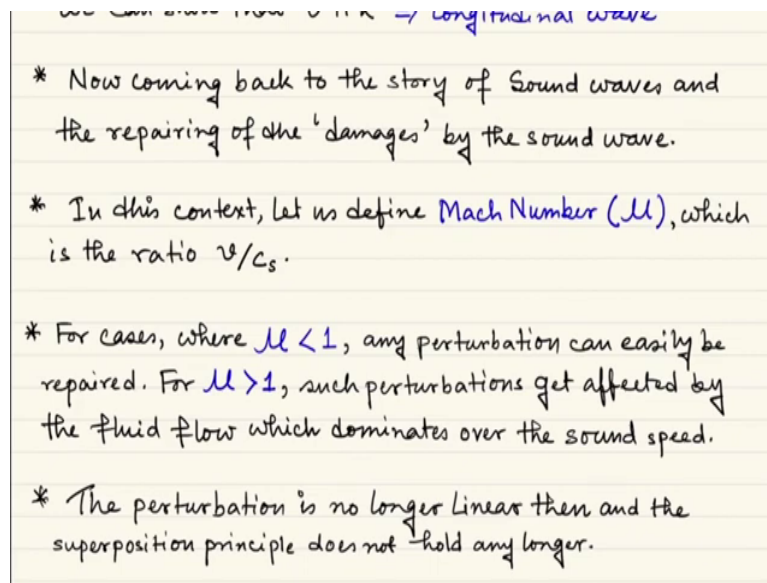 ⇒ longitudinal wave
* Now coming back to the story of Sound waves and
the repairing of the 'damages' by the sound wave.
* In this context, let us define Mach Number (M), which
is the ratio v/cₛ.
* For cases, where M < 1, any perturbation can easily be
repaired. For M > 1, such perturbations get affected by
the fluid flow which dominates over the sound speed.
* The perturbation is no longer linear then and the
superposition principle does not hold any longer.